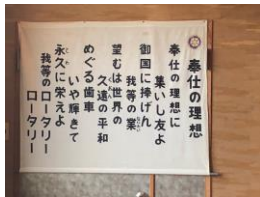 奉仕の理想
奉仕の理想に
集いし友よ
御国に捧げん
我等の業
望むは世界の
久遠の平和
めぐる歯車
いや輝きて
永久に栄えよ
我等のロータリー
ロータリー